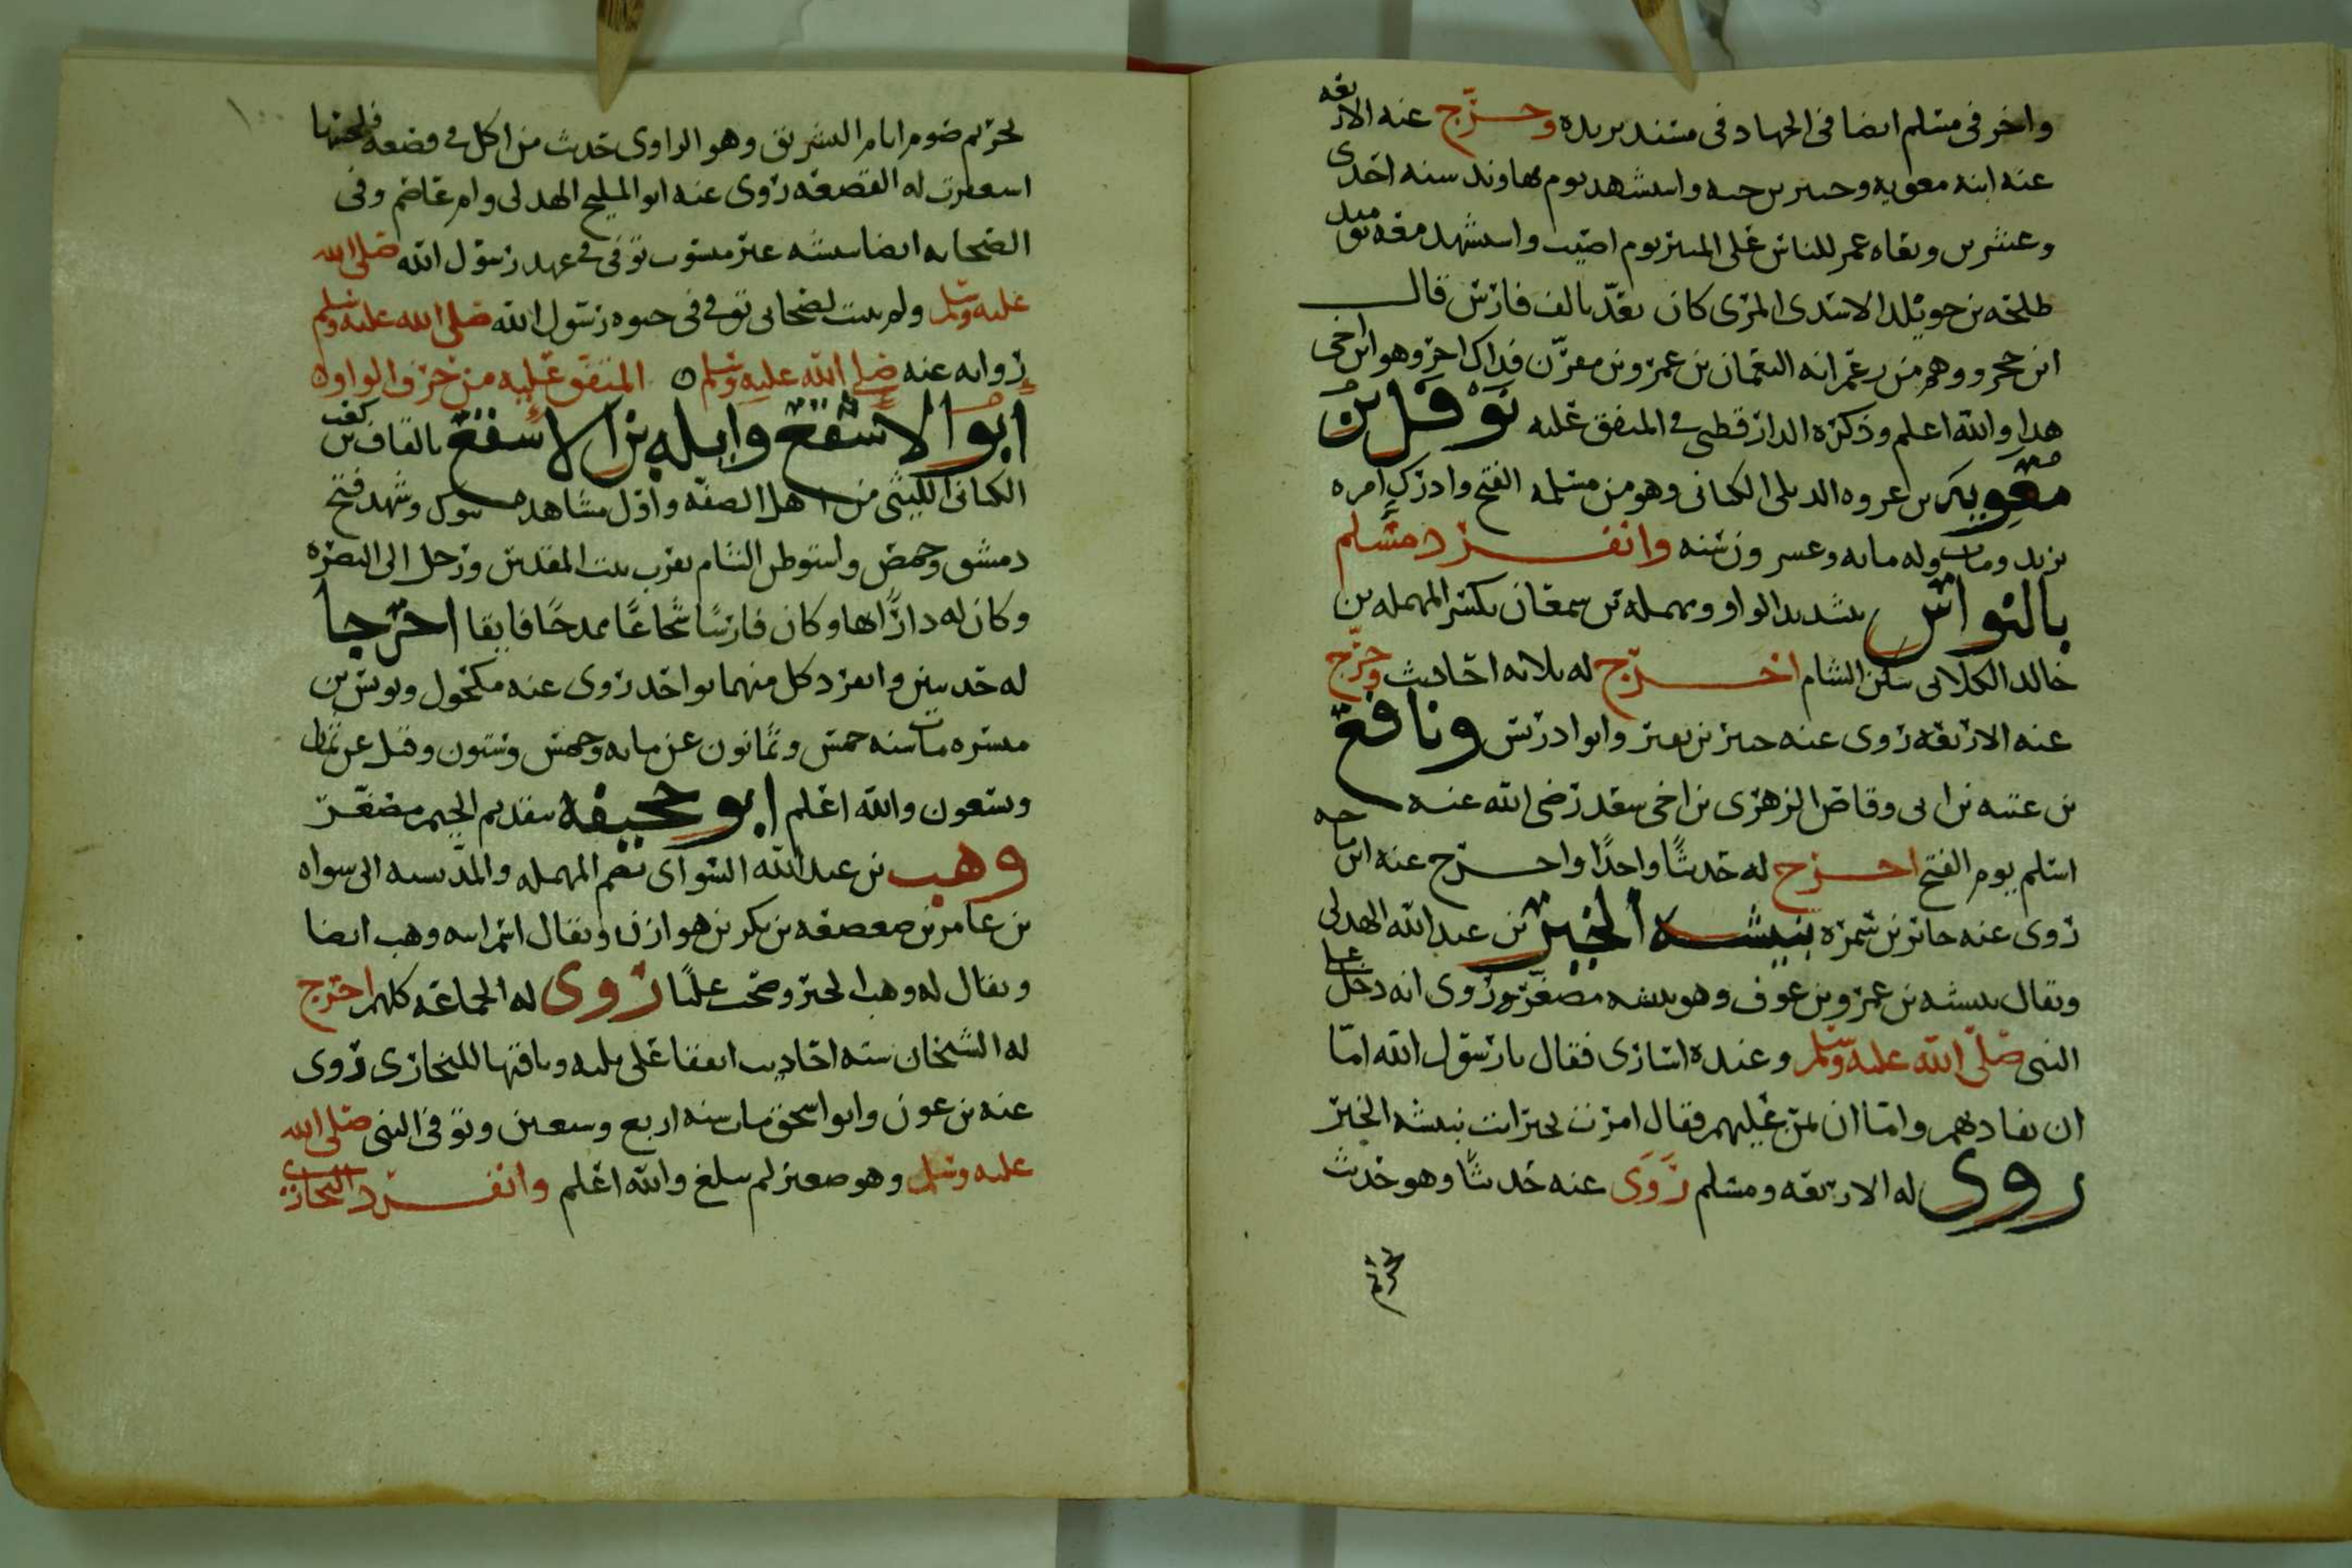 واخر في مسلم ايضا في الجهاد في مسند بريده وخرج عنه الاربعه
عنه ابنه معويه وجبير بن حيه واستشهد يوم نهاوند سنه احدى
وعشرين ونعاه عمر للناس على المنبر يوم اصيب واستشهد معه يوميد
طلحه بن خويلد الاسدى كان يعد بالف فارس قال
ابن حجر ووهم من زعم انه النعمان بن عمرو بن مقرن فذاك اخر وهو ابن اخى
هذا والله اعلم وذكره الدارقطني في المتفق عليه نوفل بن
معويه بن عروه الديلى الكنانى وهو من مسلمه الفتح وادرك امره
يزيد ومات وله مايه وعشرون سنه وانفرد مسلم
بالنواس بتشديد الواو ومهمله بن سمعان بكسر المهمله بن
خالد الكلابى سكن الشام اخرج له ثلاثه احاديث وخرج
عنه الاربعه روى عنه جبير بن نفير وابو ادريس ونافع
بن عتبه بن ابى وقاص الزهرى بن اخى سعد رضى الله عنه
اسلم يوم الفتح اخرج له حديثا واحدا واخرج عنه ابن ماجه
روى عنه جابر بن سمره نبيشه الخير بن عبد الله الهذلى
ويقال نبيشه بن عمرو بن عوف وهو نبيشه مصغر وروى انه دخل على
النبى صلى الله عليه وسلم وعنده اسارى فقال يا رسول الله اما
ان تفاديهم واما ان تمن عليهم فقال امرت بخير انت نبيشه الخير
روى له الاربعه ومسلم روى عنه حديثا وهو حديث
تحريم
تحريم صوم ايام التشريق وهو الراوى حديث من اكل في قصعه فلحسها
استغفرت له القصعه روى عنه ابو المليح الهذلى وام عاصم وفى
الصحابه ايضا نبيشه غير منسوب توفى في عهد رسول الله صلى الله
عليه وسلم ولم يثبت لصحابى توفى في حيوه رسول الله صلى الله عليه وسلم
روايه عنه صلى الله عليه وسلم ٥ المتفق عليه من حرف الواو
ابو الاسقع واثله بن الاسقع بالقاف بن كعب
الكنانى الليثى من اهل الصفه واول مشاهده تبوك وشهد فتح
دمشق وحمص واستوطن الشام بقرب بيت المقدس ورحل الى البصره
وكان له دارا بها وكان فارسا شجاعا ممدحا فايقا اخرجا
له حديثين وانفرد كل منهما بواحد روى عنه مكحول ويونس بن
ميسره مات سنه خمس وثمانون عن مايه وخمس وستون وقيل عن ثمان
وتسعون والله اعلم ابو جحيفه بتقديم الجيم مصغر
وهب بن عبد الله السواى بضم المهمله والمد نسبه الى سواه
بن عامر بن صعصعه بن بكر بن هوازن ويقال اسم ابيه وهب ايضا
ويقال له وهب الخير وصحب عليا روى له الجماعه كلهم اخرج
له الشيخان سته احاديث اتفقا على ثلثه وباقيها للبخارى روى
عنه بن عون وابو اسحق مات سنه اربع وسبعين وتوفى النبى صلى الله
عليه وسلم وهو صغير لم يبلغ والله اعلم وانفرد البخارى